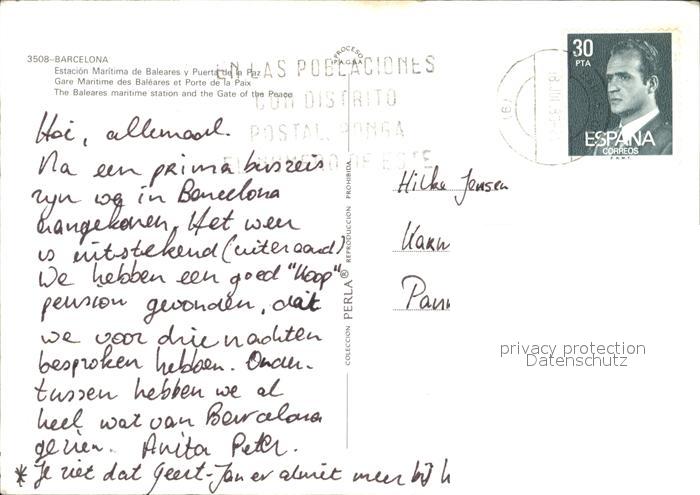 3508-BARCELONA
Estación Marítima de Baleares y Puerta de la Paz
Gare Maritime des Baléares et Porte de la Paix
The Baleares maritime station and the Gate of the Peace
EN LAS POBLACIONES
CON DISTRITO
POSTAL, PONGA
EL NUMERO DE ESTE
30
PTA
ESPAÑA
CORREOS
F.N.M.T.
Hoi, allemaal.
Na een prima busreis
zijn we in Barcelona
aangekomen. Het weer
is uitstekend (uiteraard)
We hebben een goed "Koop"
pension gevonden, dat
we voor drie nachten
besproken hebben. Onder-
tussen hebben we al
heel wat van Barcelona
gezien. Anita Peter.
* Je ziet dat Geert-Jan er alniet meer bij
Hilke Jensen
COLECCION PERLA® REPRODUCCION PROHIBIDA
privacy protection
Datenschutz